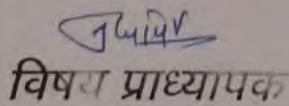 विषय प्राध्यापक